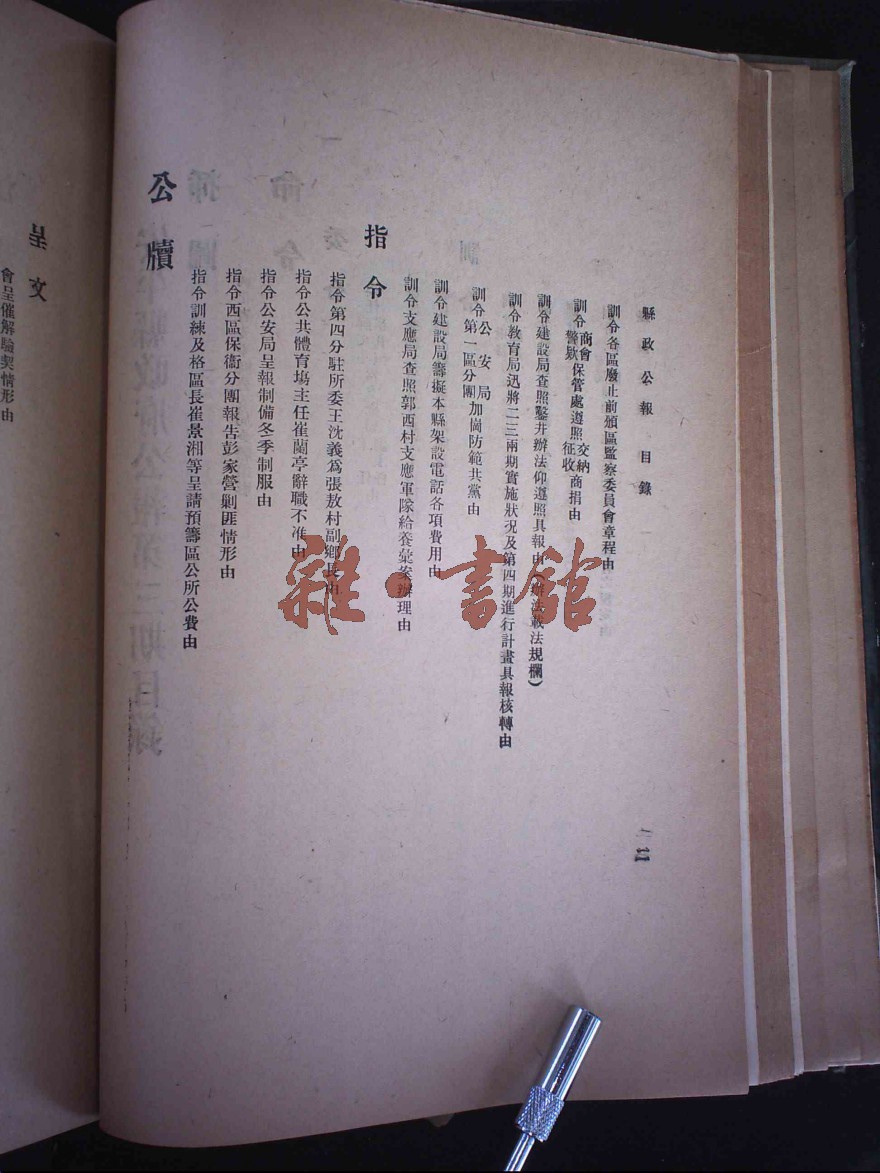 縣政公報 目錄
二
訓令各區廢止前頒區監察委員會章程由
訓令商會警欵保管處遵照交納征收商捐由
訓令建設局查照鑿井辦法仰遵照具報由(辦法載法規欄)
訓令教育局迅將二三兩期實施狀况及第四期進行計畫具報核轉由
訓令公安局第一區分團加崗防範共黨由
訓令建設局籌擬本縣架設電話各項費用由
訓令支應局查照郭西村支應軍隊給養彙案辦理由
指令
指令第四分駐所委王沈義爲張敖村副鄉長由
指令公共體育塲主任崔蘭亭辭職不准由
指令公安局呈報制備冬季制服由
指令西區保衞分團報告彭家營剿匪情形由
指令訓練及格區長崔景湘等呈請預籌區公所公費由
公牘
呈文
會呈催解驗契情形由
雜·書館